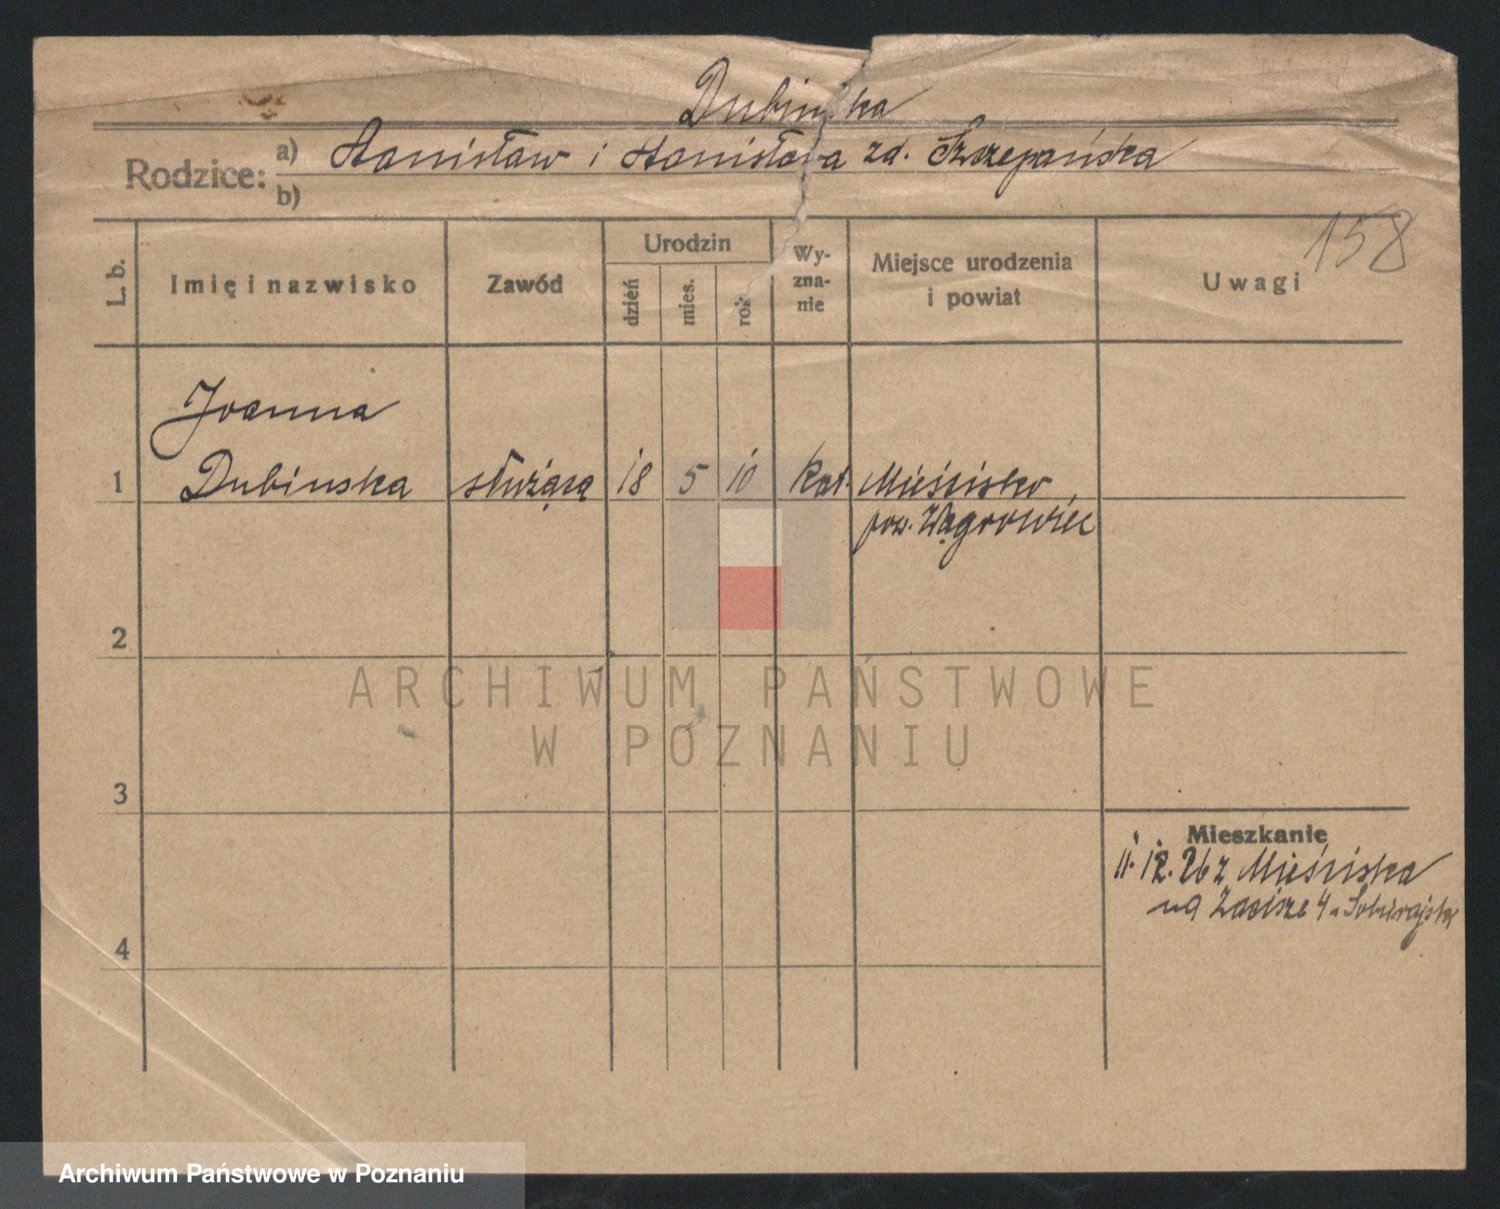 Dubinska
Rodzice: a) Stanisław i Stanisława zd. Szczepańska
b)
158
L. b. Imię i nazwisko Zawód Urodzin dzień mies. rok Wyznanie Miejsce urodzenia i powiat Uwagi
Joanna
1 Dubinska służąca 18 5 10 kat. Mieścisko,
pow. Wągrowiec
2
3
4
Mieszkanie
11. 12. 26 z Mieściska
na Zacisze 4
ARCHIWUM PAŃSTWOWE
W POZNANIU
Archiwum Państwowe w Poznaniu